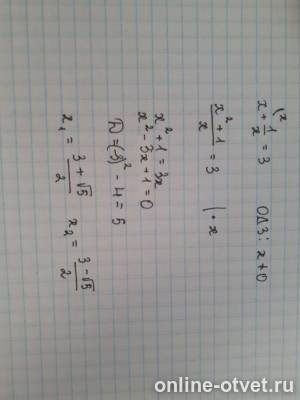 x + 1/x = 3 (x ОДЗ: x ≠ 0
(x² + 1)/x = 3 | · x
x² + 1 = 3x
x² - 3x + 1 = 0
D = (-3)² - 4 = 5
x₁ = (3 + √5)/2 x₂ = (3 - √5)/2
online-otvet.ru